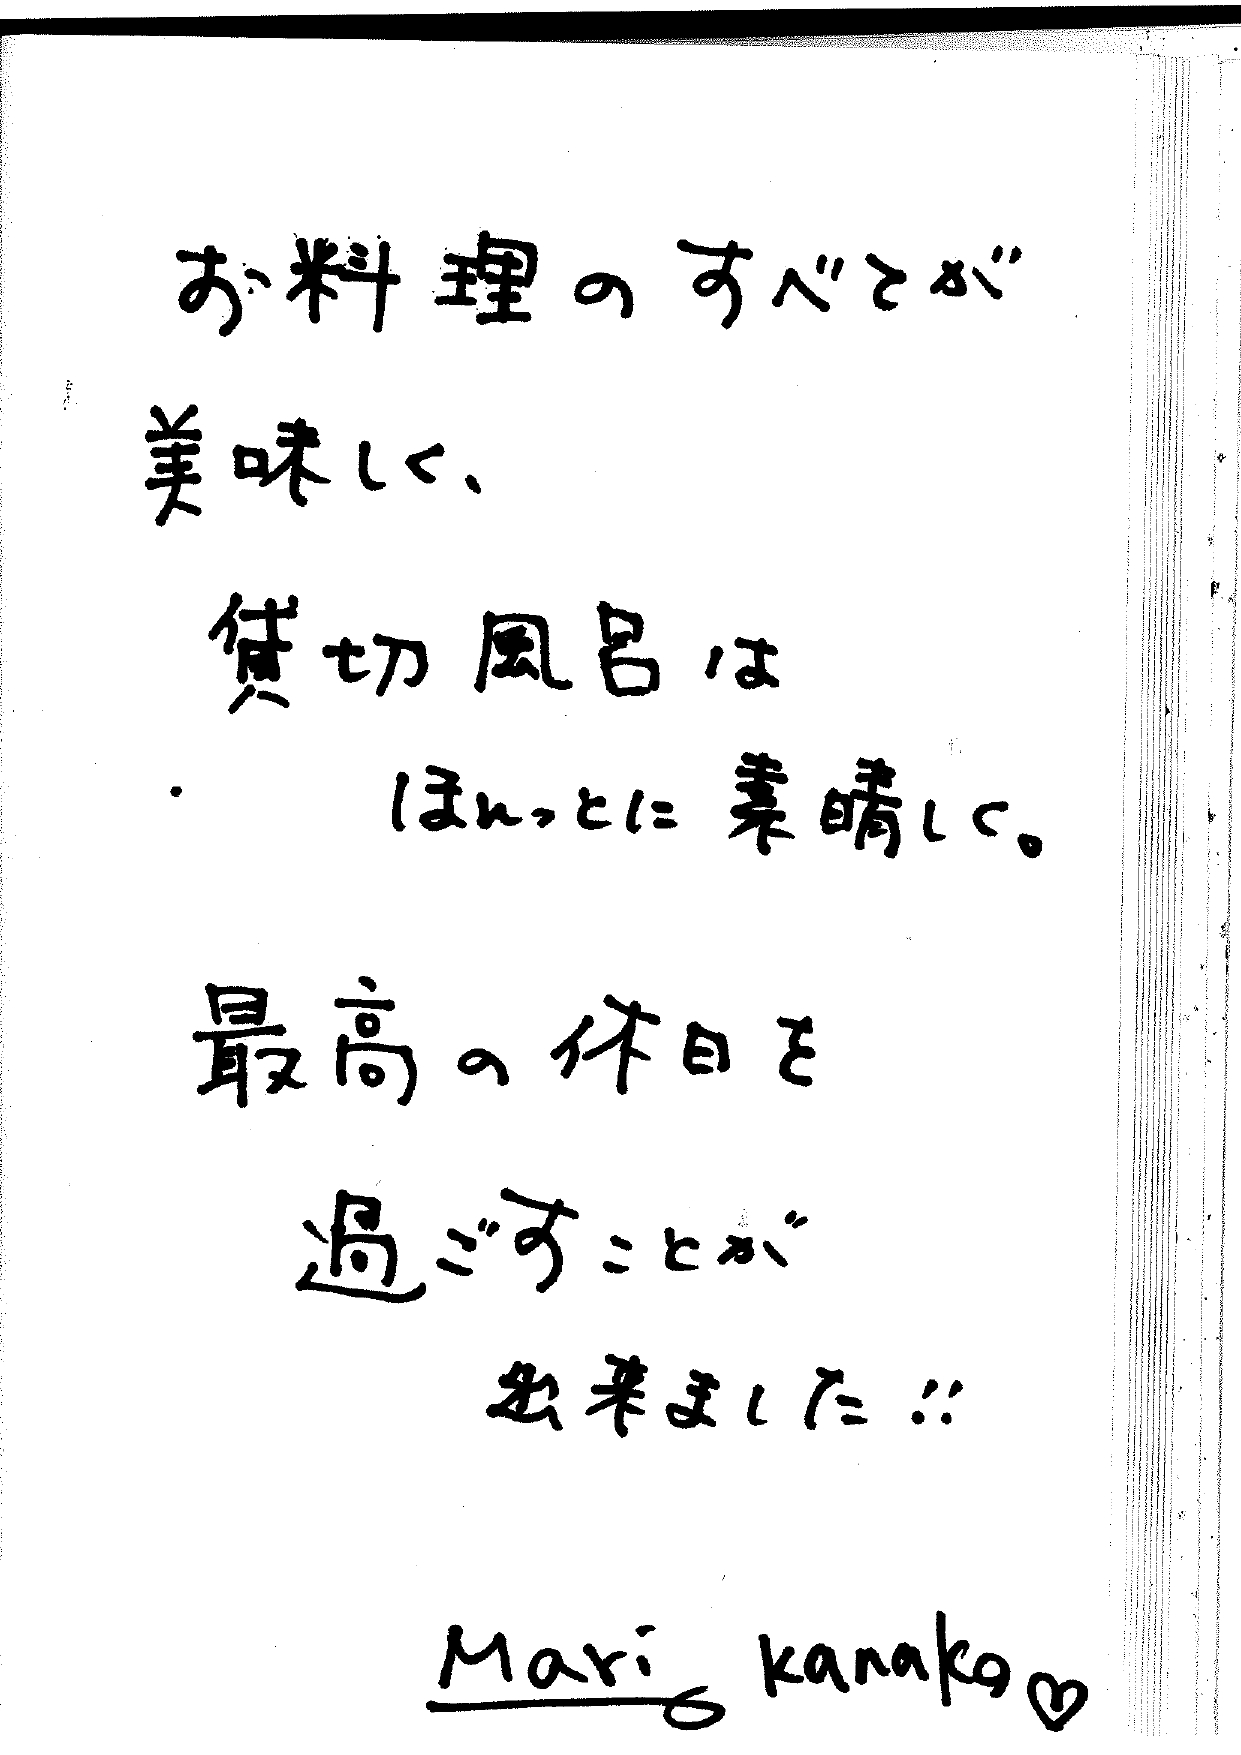 お料理のすべてが
美味しく、
貸切風呂は
ほんっとに素晴しく。
最高の休日を
過ごすことが
出来ました!!
Mari Kanako♡